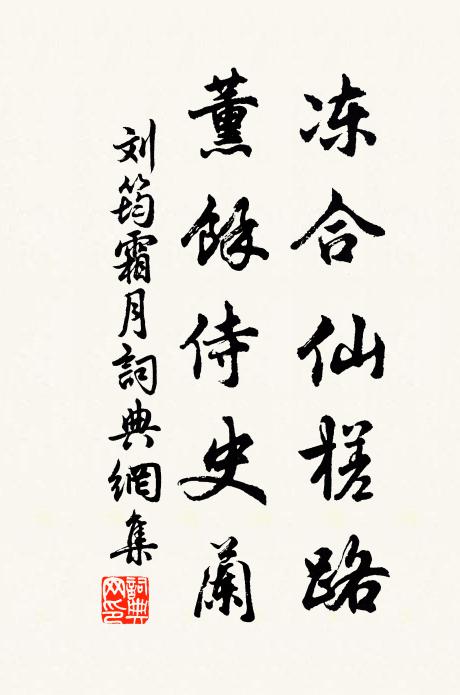 冻合仙槎路
薰馀侍史蘭
刘筠霜月詞典網集
詞典网印